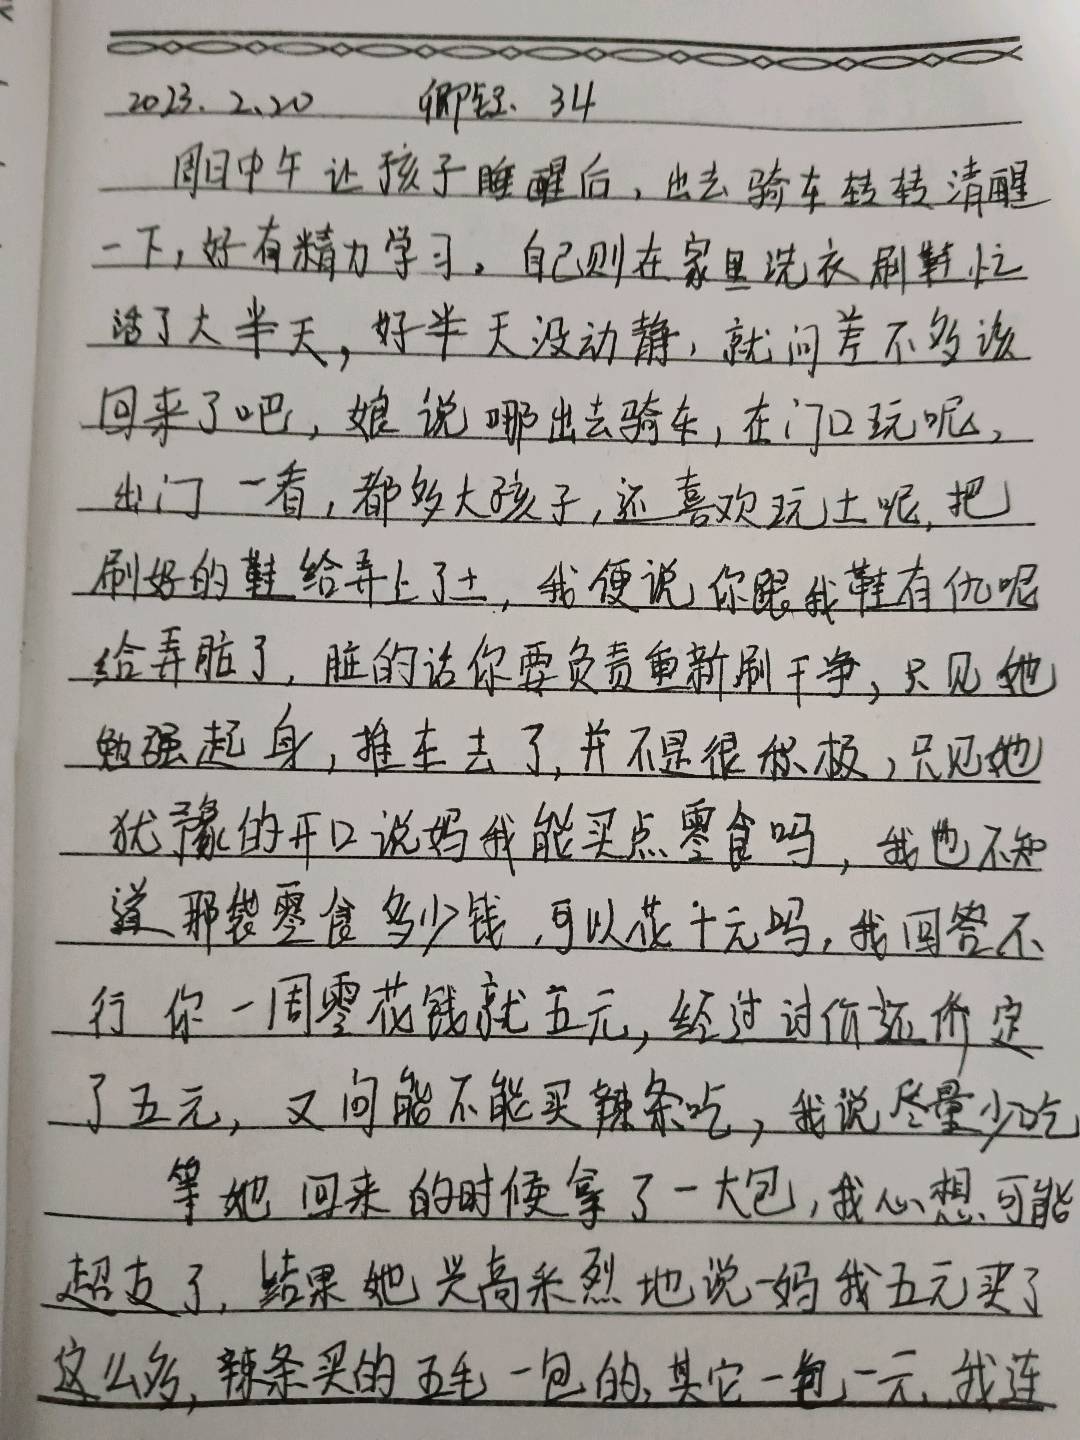 2023.2.20 卿钰. 34
周日中午让孩子睡醒后，出去骑车转转清醒
一下，好有精力学习。自己则在家里洗衣刷鞋忙
活了大半天，好半天没动静，就问差不多该
回来了吧，娘说哪出去骑车，在门口玩呢，
出门一看，都多大孩子，还喜欢玩土呢，把
刷好的鞋给弄上了土，我便说你跟我鞋有仇呢
给弄脏了，脏的话你要负责重新刷干净，只见她
勉强起身，推车去了，并不是很积极，只见她
犹豫的开口说妈我能买点零食吗，我也不知
道那袋零食多少钱，可以花十元吗，我回答不
行你一周零花钱就五元，经过讨价还价定
了五元，又问能不能买辣条吃，我说尽量少吃
等她回来的时候拿了一大包，我心想可能
超支了，结果她兴高采烈地说妈我五元买了
这么多，辣条买的五毛一包的，其它一包一元，我连